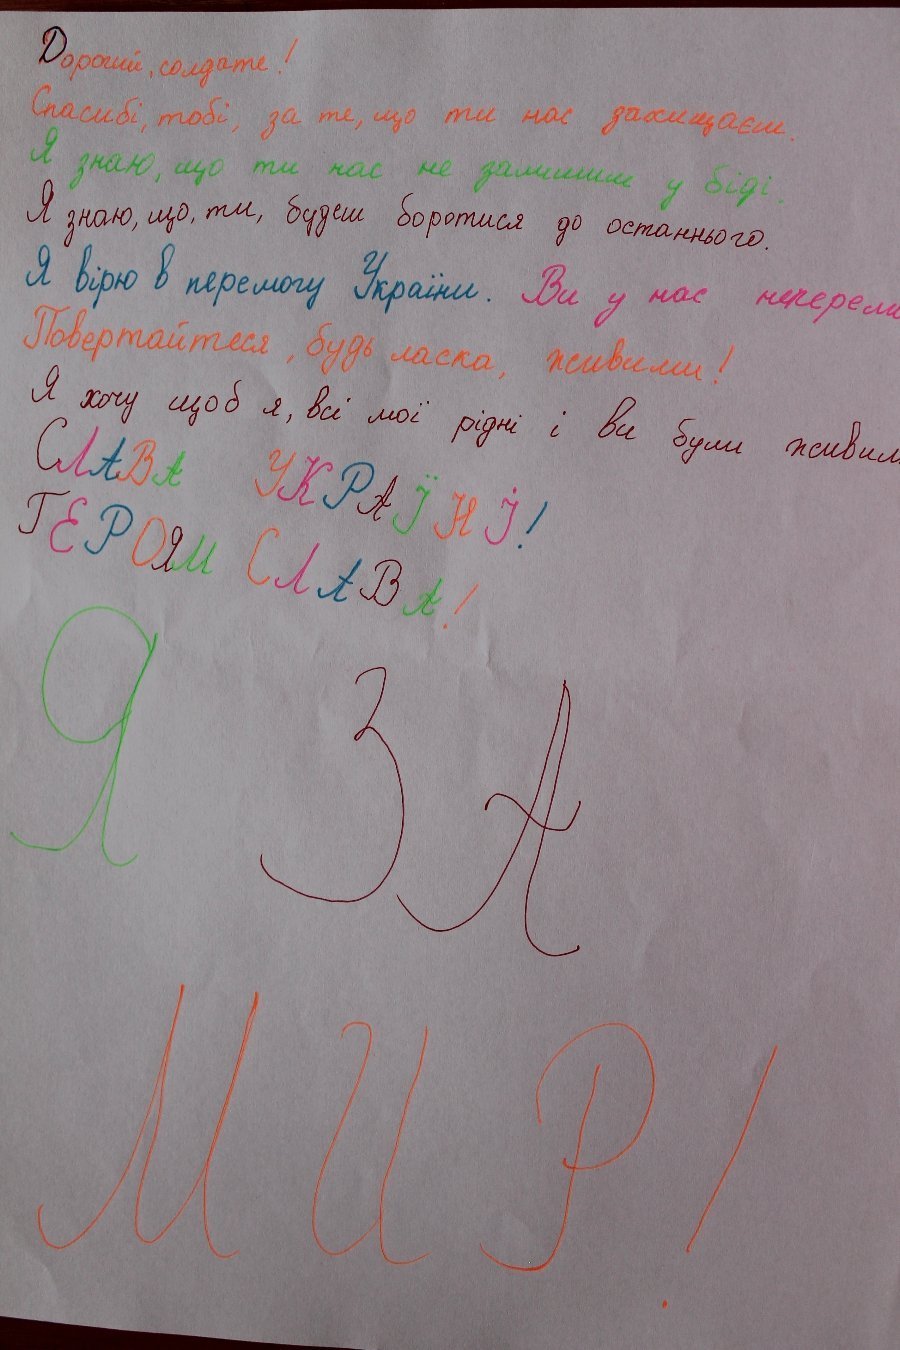 Дорогий, солдате!
Спасибі, тобі, за те, що ти нас захищаєш.
Я знаю, що ти нас не залишиш у біді.
Я знаю, що, ти, будеш боротися до останнього.
Я вірю в перемогу України. Ви у нас
Повертайтеся, будь ласка, живими!
Я хочу щоб я, всі мої рідні і ви були живим
СЛАВА УКРАЇНІ!
ГЕРОЯМ СЛАВА!
Я ЗА
МИР!